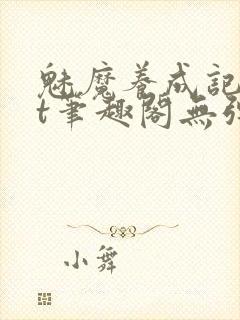 魅魔养成記
t筆趣閣無弹
小舞